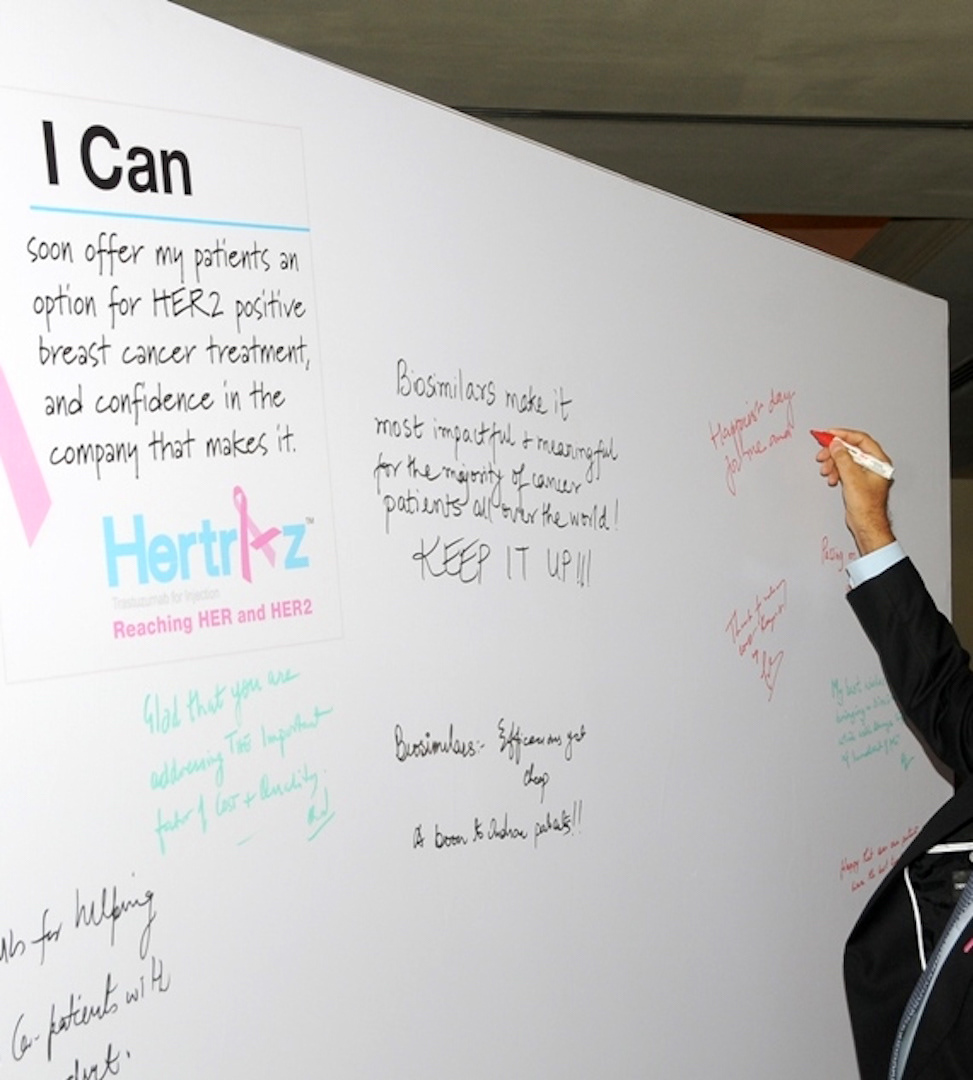 I Can
soon offer my patients an
option for HER2 positive
breast cancer treatment,
and confidence in the
company that makes it.
Hertraz™
Trastuzumab for Injection
Reaching HER and HER2
Glad that you are
addressing Two Important
factor of Cost + Quality.
for helping
Ca- patients with
Biosimilars make it
most impactful + meaningful
for the majority of cancer
patients all over the world!
KEEP IT UP!!!
Biosimilars:- Efficacious yet
cheap
A boon to Indian patients!!
Happiest day
for me and
My best
bringing a